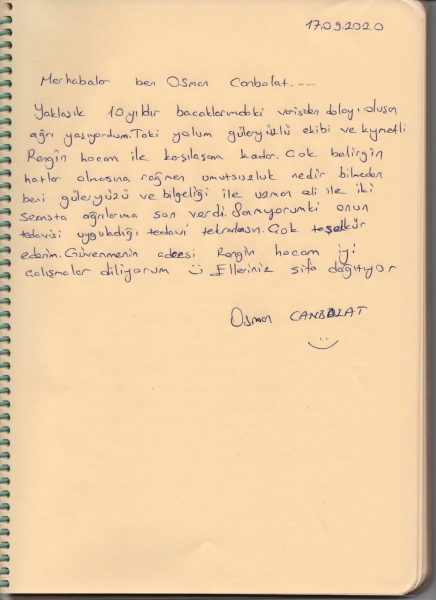 17.09.2020
Merhabalar ben Osman Canbolat....
Yaklaşık 10 yıldır bacaklarımdaki varisden dolayı oluşan
ağrı yaşıyordum. Taki yolum güleryüzlü ekibi ve kıymetli
Rengin hocam ile karşılaşana kadar. Çok belirgin
hatlar olmasına rağmen umutsuzluk nedir bilmeden
beni güleryüzü ve bilgeliği ile uzman eli ile iki
seansta ağrılarıma son verdi. Sanmıyorumki onun
tedavisi uyguladığı tedavi tekrarlasın. Çok teşekkür
ederim. Güvenmenin adresi Rengin hocam iyi
çalışmalar diliyorum Ü Elleriniz şifa dağıtıyor
Osman CANBOLAT